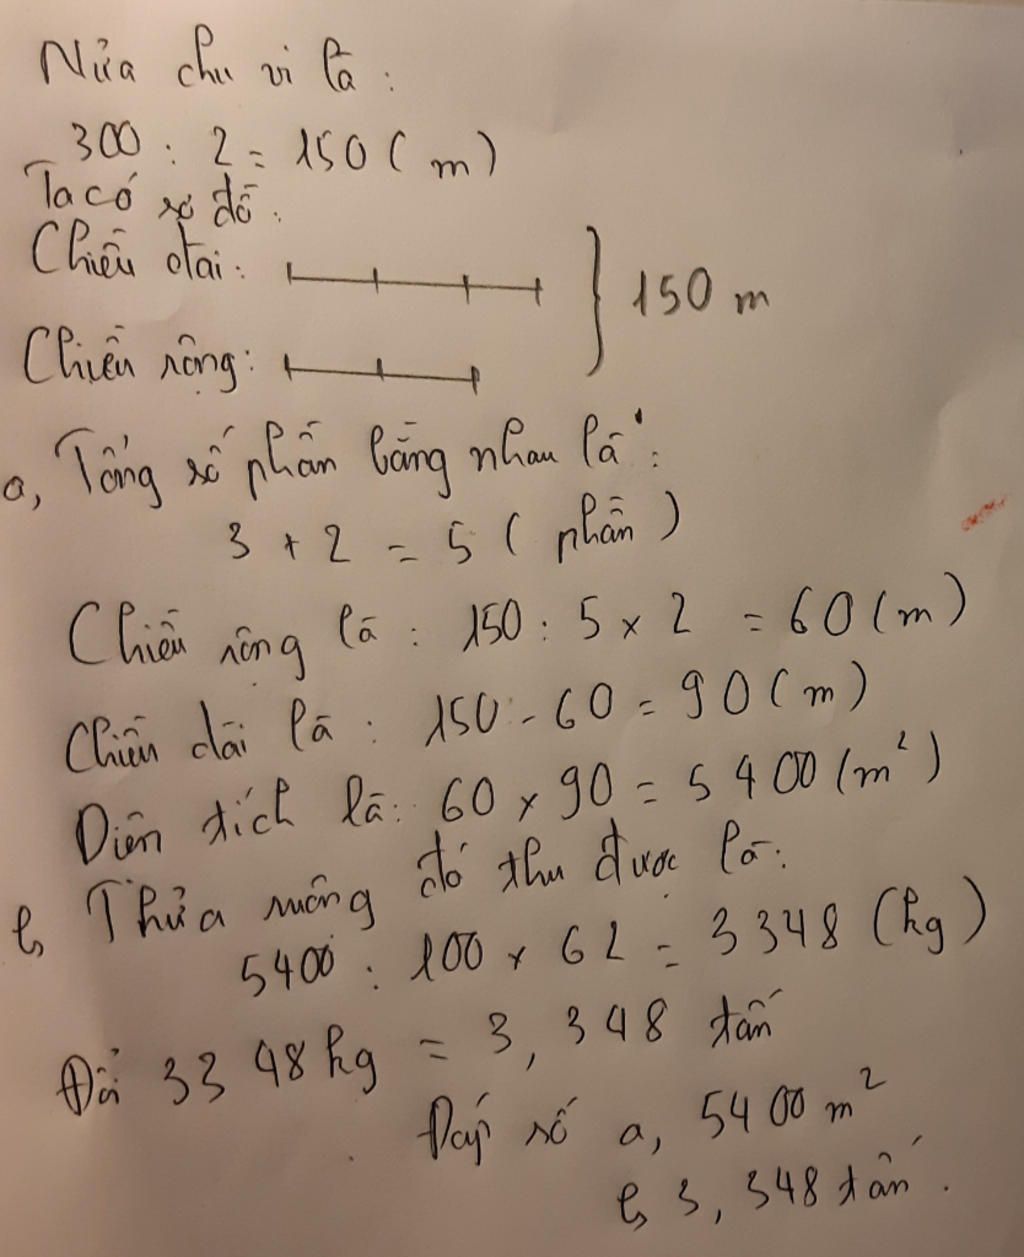 Nửa chu vi là :
300 : 2 = 150 ( m )
Ta có sơ đồ :
Chiều dài :
150 m
Chiều rộng :
a, Tổng số phần bằng nhau là :
3 + 2 = 5 ( phần )
Chiều rộng là : 150 : 5 x 2 = 60 ( m )
Chiều dài là : 150 - 60 = 90 ( m )
Diện tích là : 60 x 90 = 5400 ( m² )
b, Thửa ruộng đó thu được là :
5400 : 100 x 62 = 3348 ( kg )
Đổi 3348 kg = 3,348 tấn
Đáp số a, 5400 m²
b, 3,348 tấn .